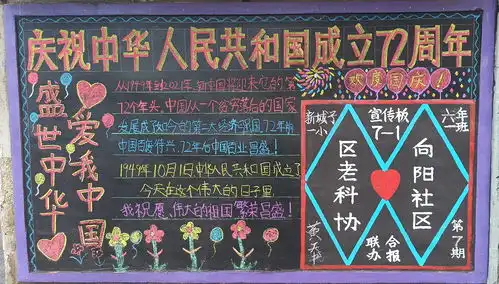 庆祝中华人民共和国成立72周年
欢度国庆!
盛世中华
爱我中国
从1949年到2021年,新中国将迎来她的第
72个年头,中国从一个贫穷落后的国家
发展成政如今的第二大经济强国,72年的
中国百废待兴,72年的中国百业昌盛!
1949年10月1日中华人民共和国成立了
今天在这个伟大的日子里
我祝愿,伟大的祖国 繁荣昌盛!
新城子
一小
宣传板
7-1
六年
一班
区老科协
向阳社区
联办
合报
第7期